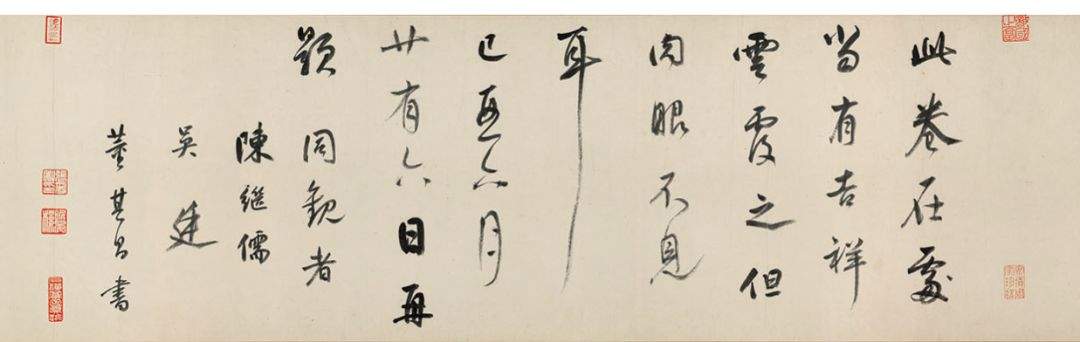 此卷在處
当有吉祥
雲覆之但
肉眼不見
耳
己酉六月
廿有六日再
題 同觀者
陳繼儒
吳廷
董其昌書